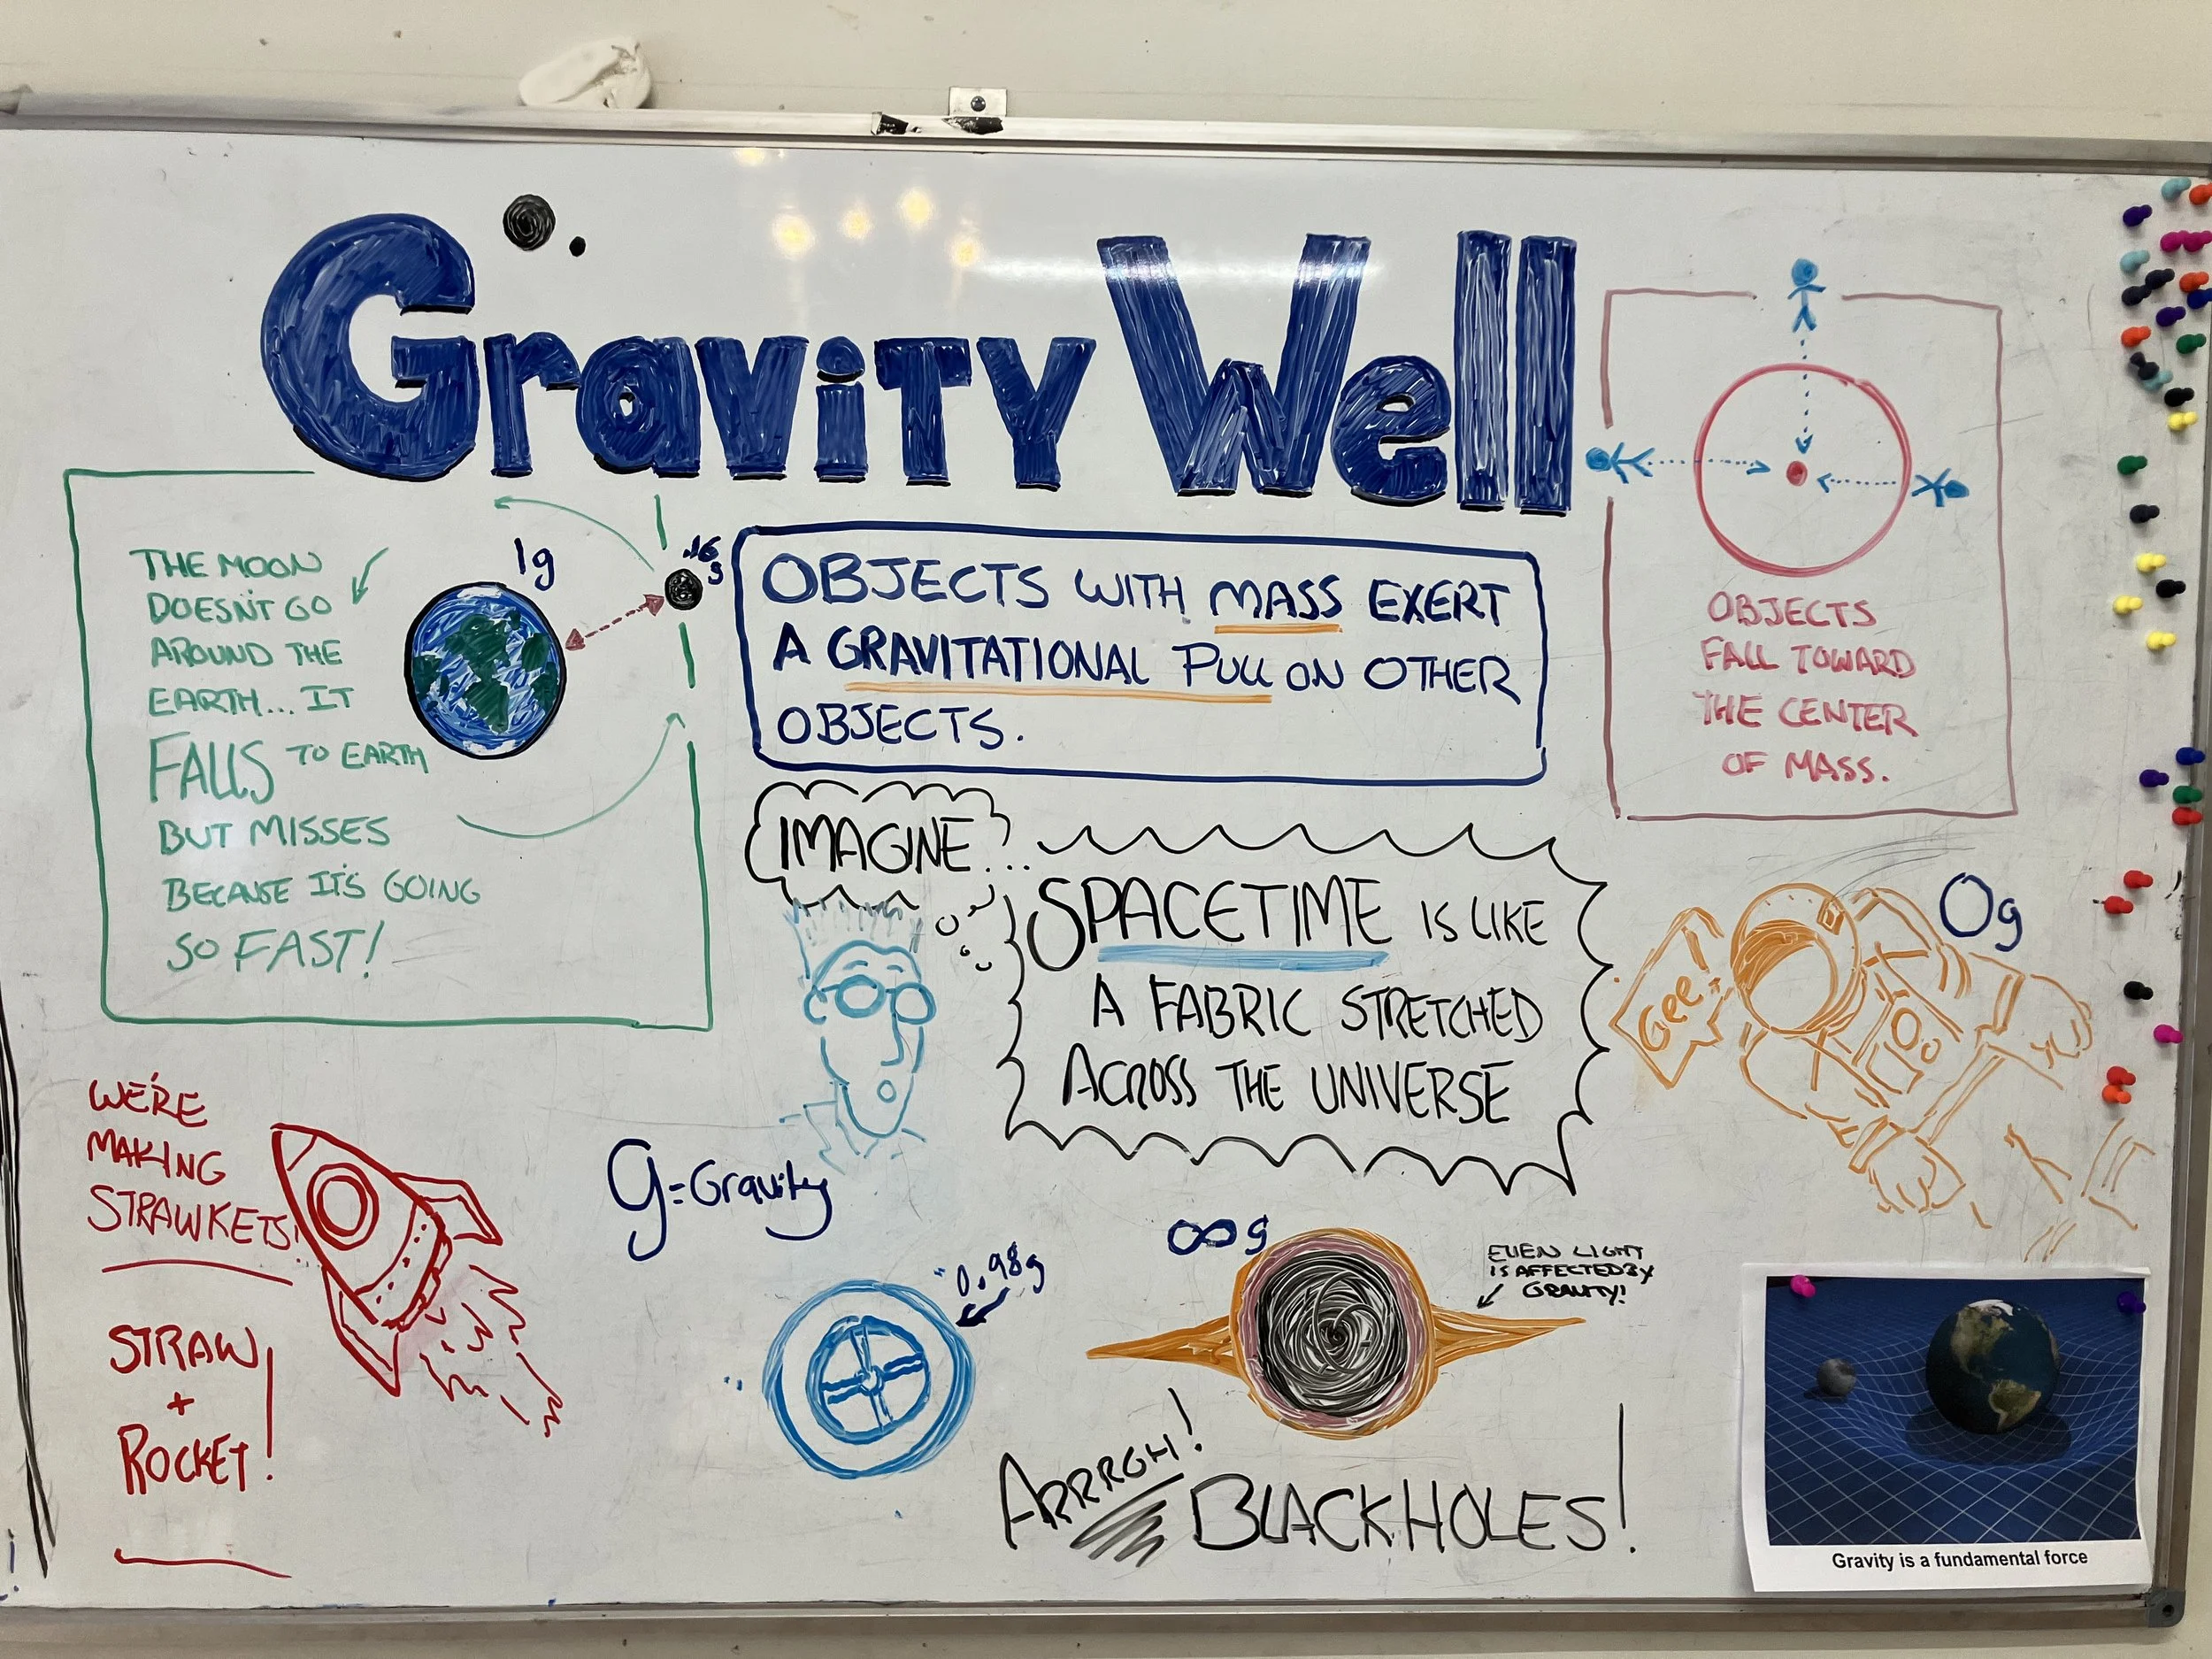 Gravity Well
THE MOON
DOESN'T GO
AROUND THE
EARTH... IT
FALLS TO EARTH
BUT MISSES
BECAUSE IT'S GOING
SO FAST!
1g
.16
g
OBJECTS WITH MASS EXERT
A GRAVITATIONAL PULL ON OTHER
OBJECTS.
OBJECTS
FALL TOWARD
THE CENTER
OF MASS.
IMAGINE?...
SPACETIME IS LIKE
A FABRIC STRETCHED
ACROSS THE UNIVERSE
Gee!
0g
WE'RE
MAKING
STRAWKETS!
STRAW
+
ROCKET!
g=Gravity
0.98g
∞g
EVEN LIGHT
IS AFFECTED BY
GRAVITY!
ARRRGH!
BLACKHOLES!
Gravity is a fundamental force